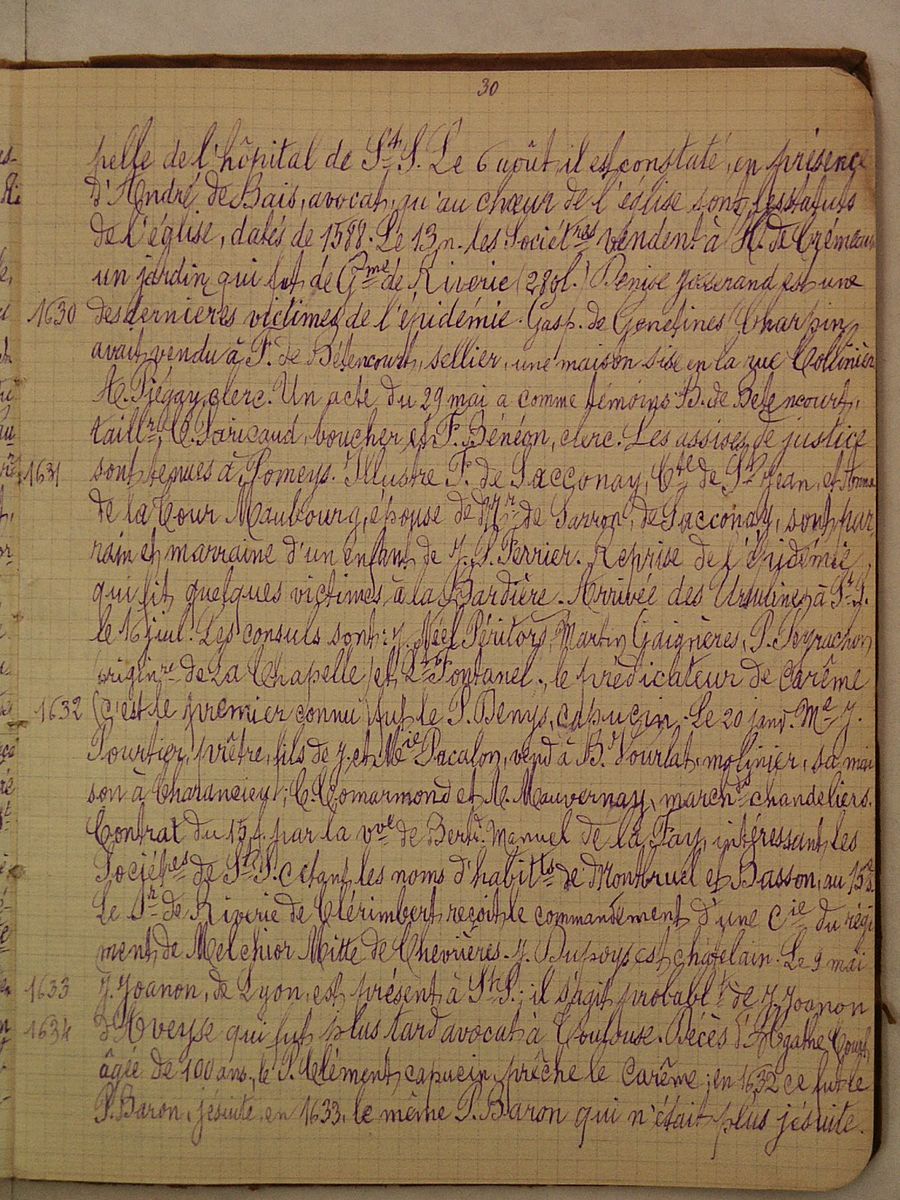 30
pelle de l'hôpital de St. S. Le 6 août il est constaté, en présence
d'André de Bais, avocat, qu'au chœur de l'église sont les statuts
de l'église, datés de 1588. Le 13 n. les Sociétres vendent à H. de Crémeaux
un jardin qui fut de Gme de Riverie (28 gl.) Denise Josserand est une
1630 des dernières victimes de l'épidémie. Gasp. de Gonetines Charpin
avait vendu à P. de Bétencourt, sellier, une maison sise en la rue
A. Piégay clerc. Un acte du 29 mai a comme témoins B. de Betencourt,
taillr, C. boucher et F. Bénéon, clerc. Les assises de justice
1631 sont tenues à Pomeys. Illustre F. de Sacconay, Cte de St Jean, et Anne
de la Tour Maubourg, épouse de Mr de Sarron, de Sacconay, sont par
rain et marraine d'un enfant de J. P. Perrier. Reprise de l'épidémie
qui fit quelques victimes à la Bardière. Arrivée des Ursulines à St. S.
le 16 juil. Les consuls sont: J. Néel Péritors, Martin Gaignières, P. Peyrachon
originre de La Chapelle) et Lt Fontanel; le prédicateur de carême
1632 (c'est le premier connu) fut le P. Denys, capucin. Le 20 janv. Me J.
Pourtier, prêtre, fils de J. et Mie Pacalon, vend à Bt Vourlat, molinier, sa mai
son à Charanciey; C. Comarmond et A. Mauvernay, marchds chandeliers.
Contrat du 15 f. par la vve de Bertd. Manuel de la Fay, intéressant les
Sociétres de St. S. citant les noms d'habitts de Montbruel et Basson, au 15e s.
Le Sr de Riverie de Clérimbert reçoit le commandement d'une Cie du régi
ment de Melchior Mitte de Chevrières. J. Dupoys est châtelain. Le 9 mai
1633 J. Joanon, de Lyon, est présent à St. S.; il s'agit probablt de J. Joanon
1634 d'Aveyse qui fut plus tard avocat à Toulouse. Décès d'Agathe
âgée de 100 ans, le P. Clément, capucin, prêche le carême; en 1632 ce fut le
P. Baron, jésuite en 1633, le même P. Baron qui n'était plus jésuite.